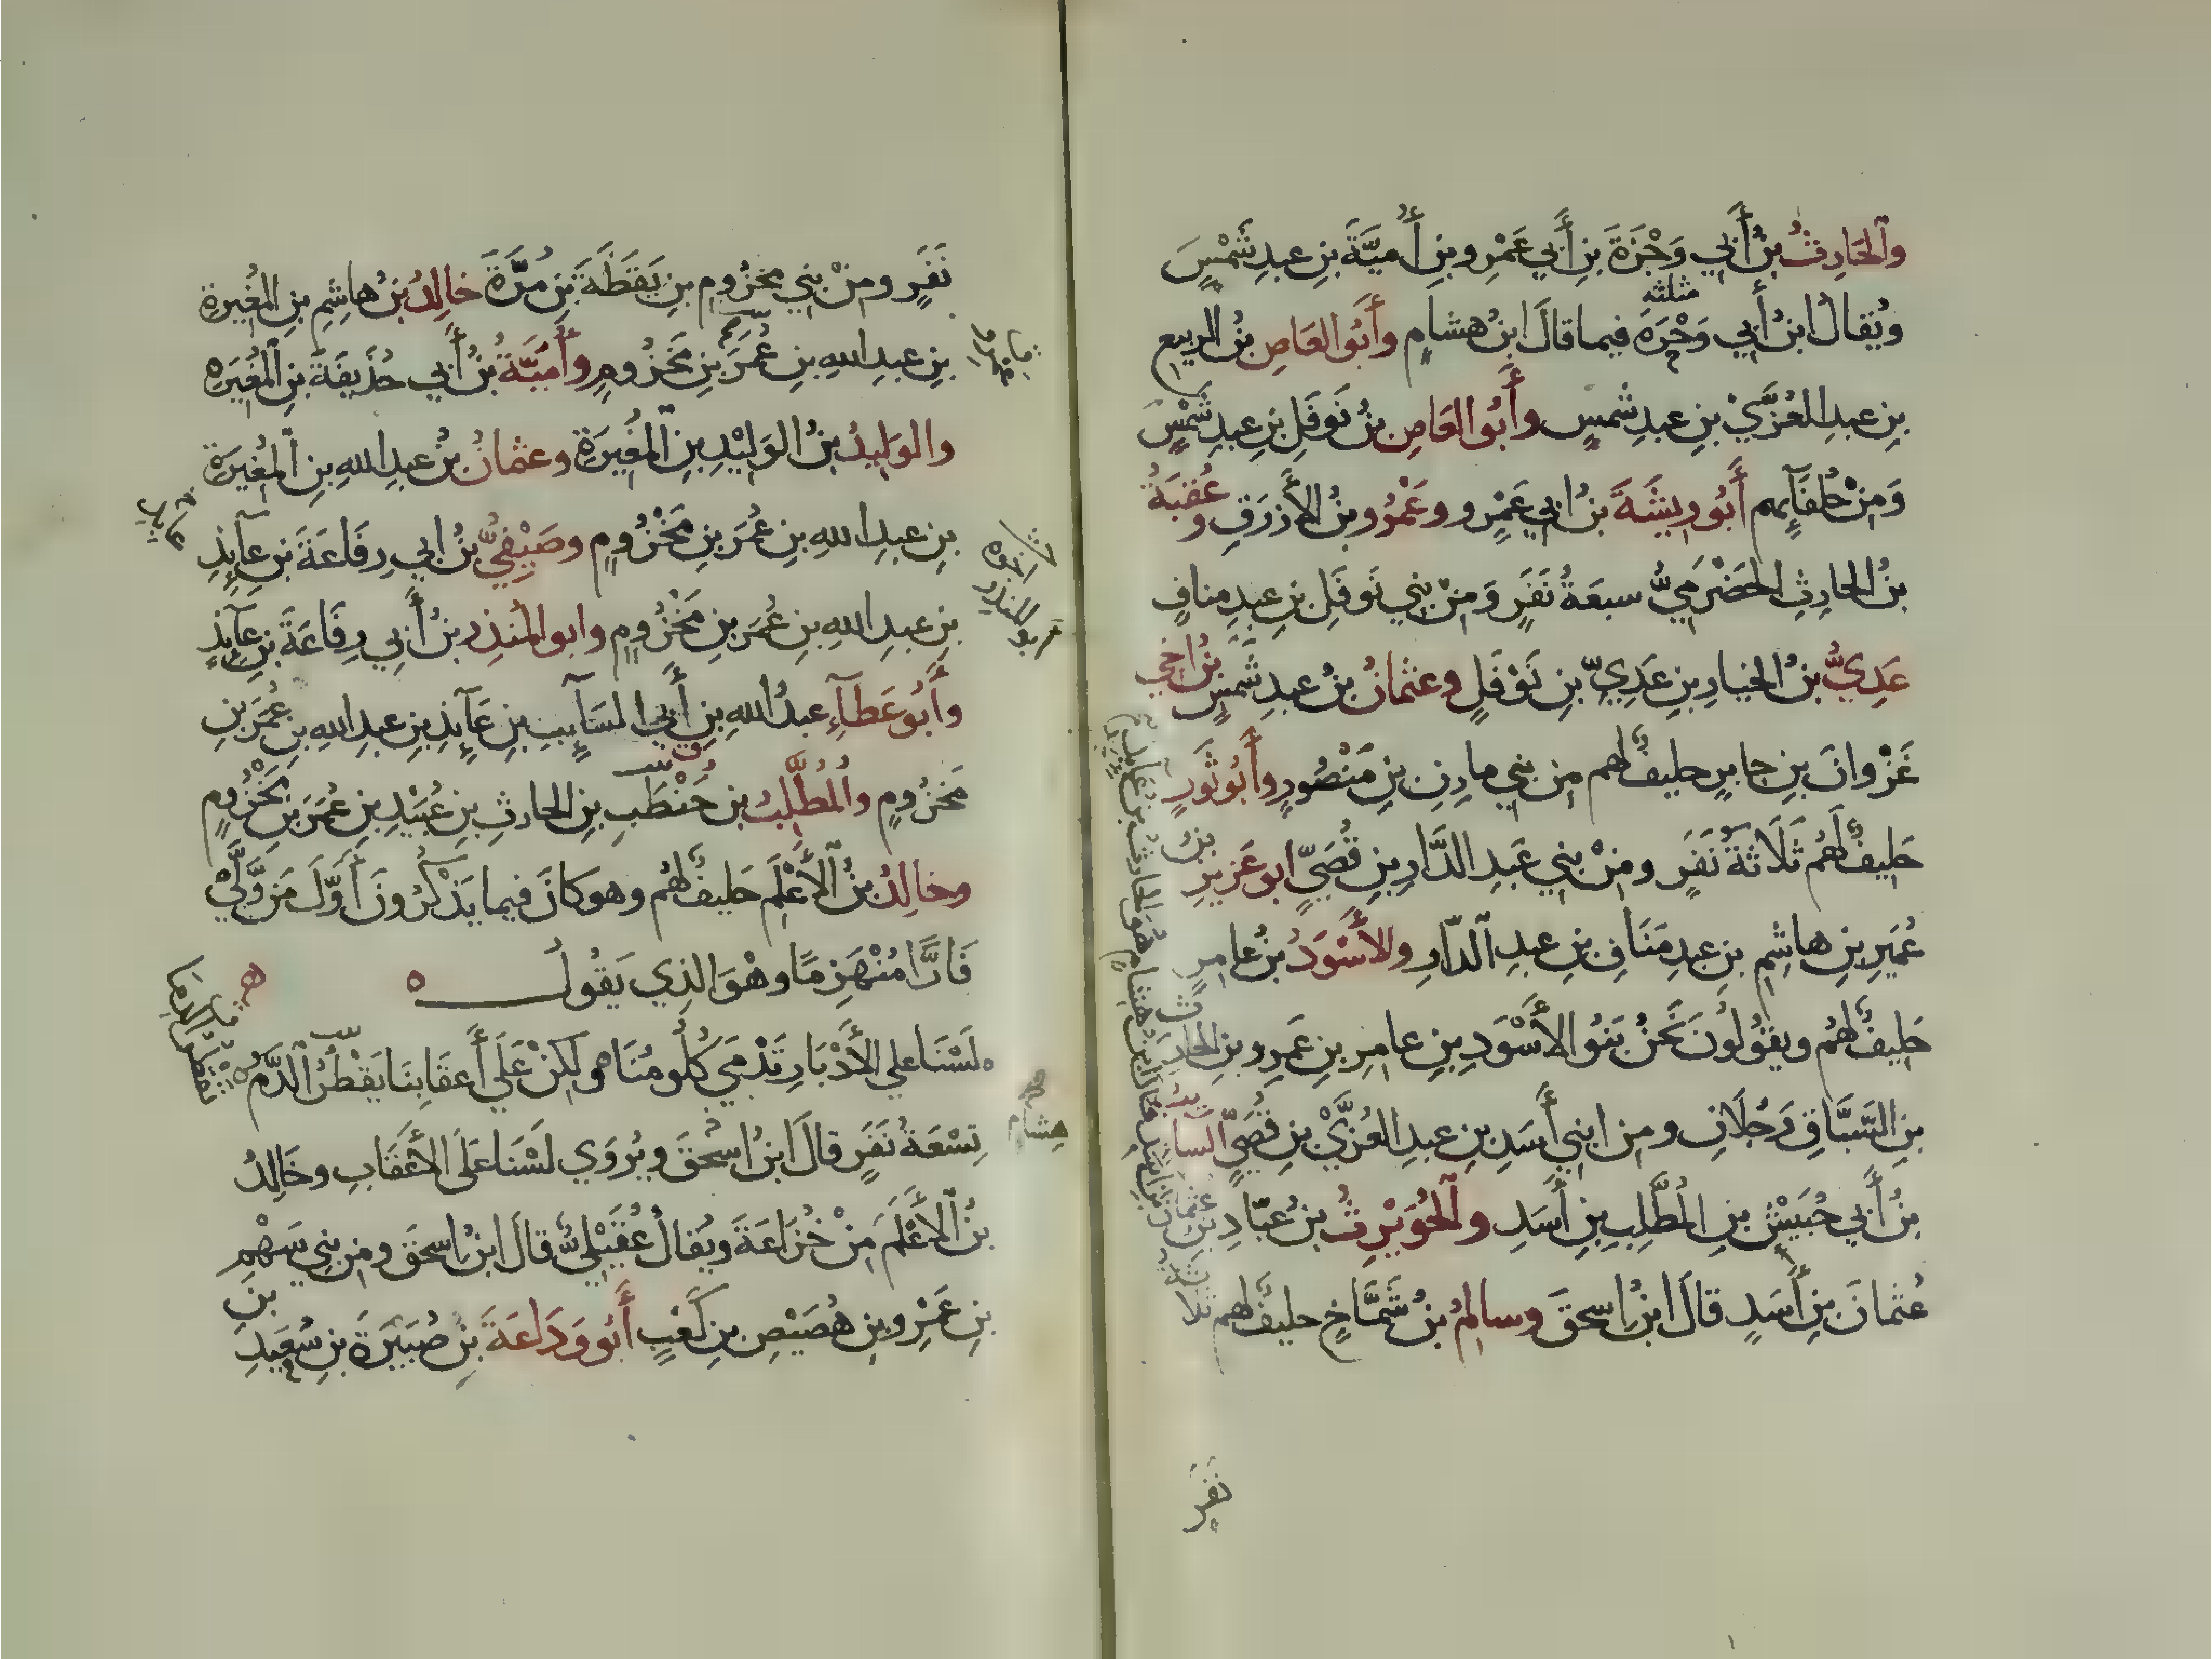 والحَارِثُ بنُ أَبي وَجْزَةَ بنِ أَبي عَمْرِو بنِ أُميَّةَ بنِ عبدِ شَمْسٍ
ويُقالُ ابنُ أَبي وَحْرَةَ فيما قالَ ابنُ هشامٍ وأَبُو العَاصِ بنُ الربيعِ
بنِ عبدِ العُزَّيْ بنِ عبدِ شمسٍ وأَبُو العَاصِ بنُ نَوفَلِ بنِ عبدِ شَمْسٍ
وَمِنْ حُلفَآئِهم أَبُو رِيشَةَ بنُ ابي عَمْرٍو وعَمْرُو بنُ الأَزرَقِ وعُقبَةُ
بنُ الحارِثِ الحَضْرَمِيُّ سبعَةُ نَفَرٍ وَمِنْ بني نَوفَلِ بنِ عبدِ منافٍ
عَدِيُّ بنُ الخيارِ بنِ عَدِيِّ بنِ نَوْفَلٍ وعثمانُ بنُ عبدِ شَمسٍ بنُ اخي
غَزْوانَ بنِ جابرٍ حليفٌ لهم من بني مازِنِ بنِ مَنْصُورٍ وأَبُو ثَورٍ
حَليفٌ لَهُم ثَلَاثَةُ نَفَرٍ ومِنْ بني عَبدِ الدَّارِ بنِ قُصَيٍّ ابو عَزيزِ بنُ
عُمَيرِ بنِ هاشِمِ بنِ عبدِ مَنَافِ بنِ عبدِ الدّارِ والأَسْوَدُ بنُ عامرٍ
حَليفٌ لهُم ويقُولُونَ نَحنُ بَنُو الأَسْوَدِ بنِ عامِرِ بنِ عَمرِو بنِ الحارِث
بنِ السَّبَّاقِ رَجُلَانِ ومن ابني أَسَدِ بنِ عبدِ العُزَّيْ بنِ قُصَيٍّ السآئبُ
بنُ أَبي حُبَيْشِ بنِ المُطَّلِبِ بنِ أَسَدِ والحُوَيْرِثُ بنُ عبّادِ بنِ عثمانَ
عُثمانَ بنِ أَسَدٍ قالَ ابنُ اسحقَ وسالمُ بنُ شَمَّاخٍ حليفٌ لهم ثلاثة
نَفَرٍ
نَفَرٍ ومِنْ بني مخزُومِ بنِ يَقَظَةَ بنِ مُرَّةَ خالِدُ بنُ هاشِمِ بنِ المُغيرةِ
بنِ عبدِ اللهِ بنِ عُمَرَ بنِ مَخزُومٍ وأُمَيَّةُ بنُ أَبي حُذَيفَةَ بنِ المُغيرَةِ
والوَليدُ بنُ الوَليْدِ بنِ المُغيرَةِ وعثمانُ بنُ عبدِ اللهِ بنِ المُغيرَةِ
بنِ عبدِ اللهِ بنِ عُمَرَ بنِ مَخْزُومٍ وصَيْفِيُّ بنُ ابي رِفَاعَةَ بنِ عآئِذِ
بنِ عبدِ اللهِ بنِ عُمَرَ بنِ مَخْزُومٍ وابو المُنذِرِ بنُ أَبي رِفَاعَةَ بنِ عآئِذٍ
وأَبُو عَطآءٍ عبدُ اللهِ بنِ أَبي السَآئِبِ بنِ عَآئِذِ بنِ عبدِ اللهِ بنِ عُمَرَ بنِ
مَخزُومٍ والمُطَّلِبُ بن حَنْطَبِ بنِ الحارثِ بنِ عُبَيْدِ بنِ عُمَرَ بنِ مَخْزُومٍ
وخالِدُ بنُ الأَعْلَمِ حَليفٌ لهُم وهو كانَ فيما يَذكُرُونَ أَوَّلَ مَن وَّلَّيْ
فَارًّا مُنْهَزِمًا وهْوَ الذِي يَقُولُ
لَسْنَا علي الأَدْبَارِ تَدْمَي كُلُومُنَا ولكنْ عَلَي أَعقَابِنَا يَقْطُرُ الدَّمُ
تِسْعَةُ نَفَرٍ قالَ ابنُ اسْحٰقَ ويُروَي لَسْنَا عَلَى الأَعقَابِ وخَالِدُ
بنُ الأَعْلَمَ مِنْ خُزَاعَةَ ويُقالُ عُقَيْلِيٌّ قالَ ابنُ اسحقَ ومن بني سَهْمِ بنِ
بنِ عَمْرِو بنِ هُصَيْصِ بنِ كَعْبٍ أَبُو وَدَاعَةَ بنِ صُبَيْرَةَ بنِ سُعَيدِ